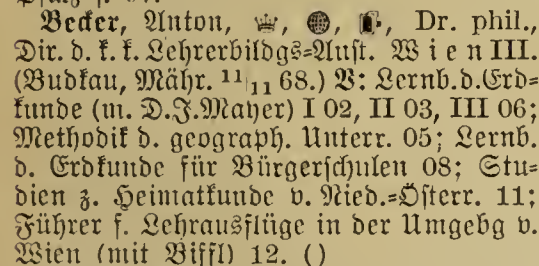 Becker, Anton, Dr. phil.,
Dir. d. k. k. Lehrerbildgs=Anst. Wien III.
(Budkau, Mähr. 11/11 68.) V: Lernb. d. Erd=
kunde (m. D. J. Mayer) I 02, II 03, III 06;
Methodik d. geograph. Unterr. 05; Lernb.
d. Erdkunde für Bürgerschulen 08; Stu=
dien z. Heimatkunde v. Nied.=Österr. 11;
Führer f. Lehrausflüge in der Umgebg v.
Wien (mit Biffl) 12. ()